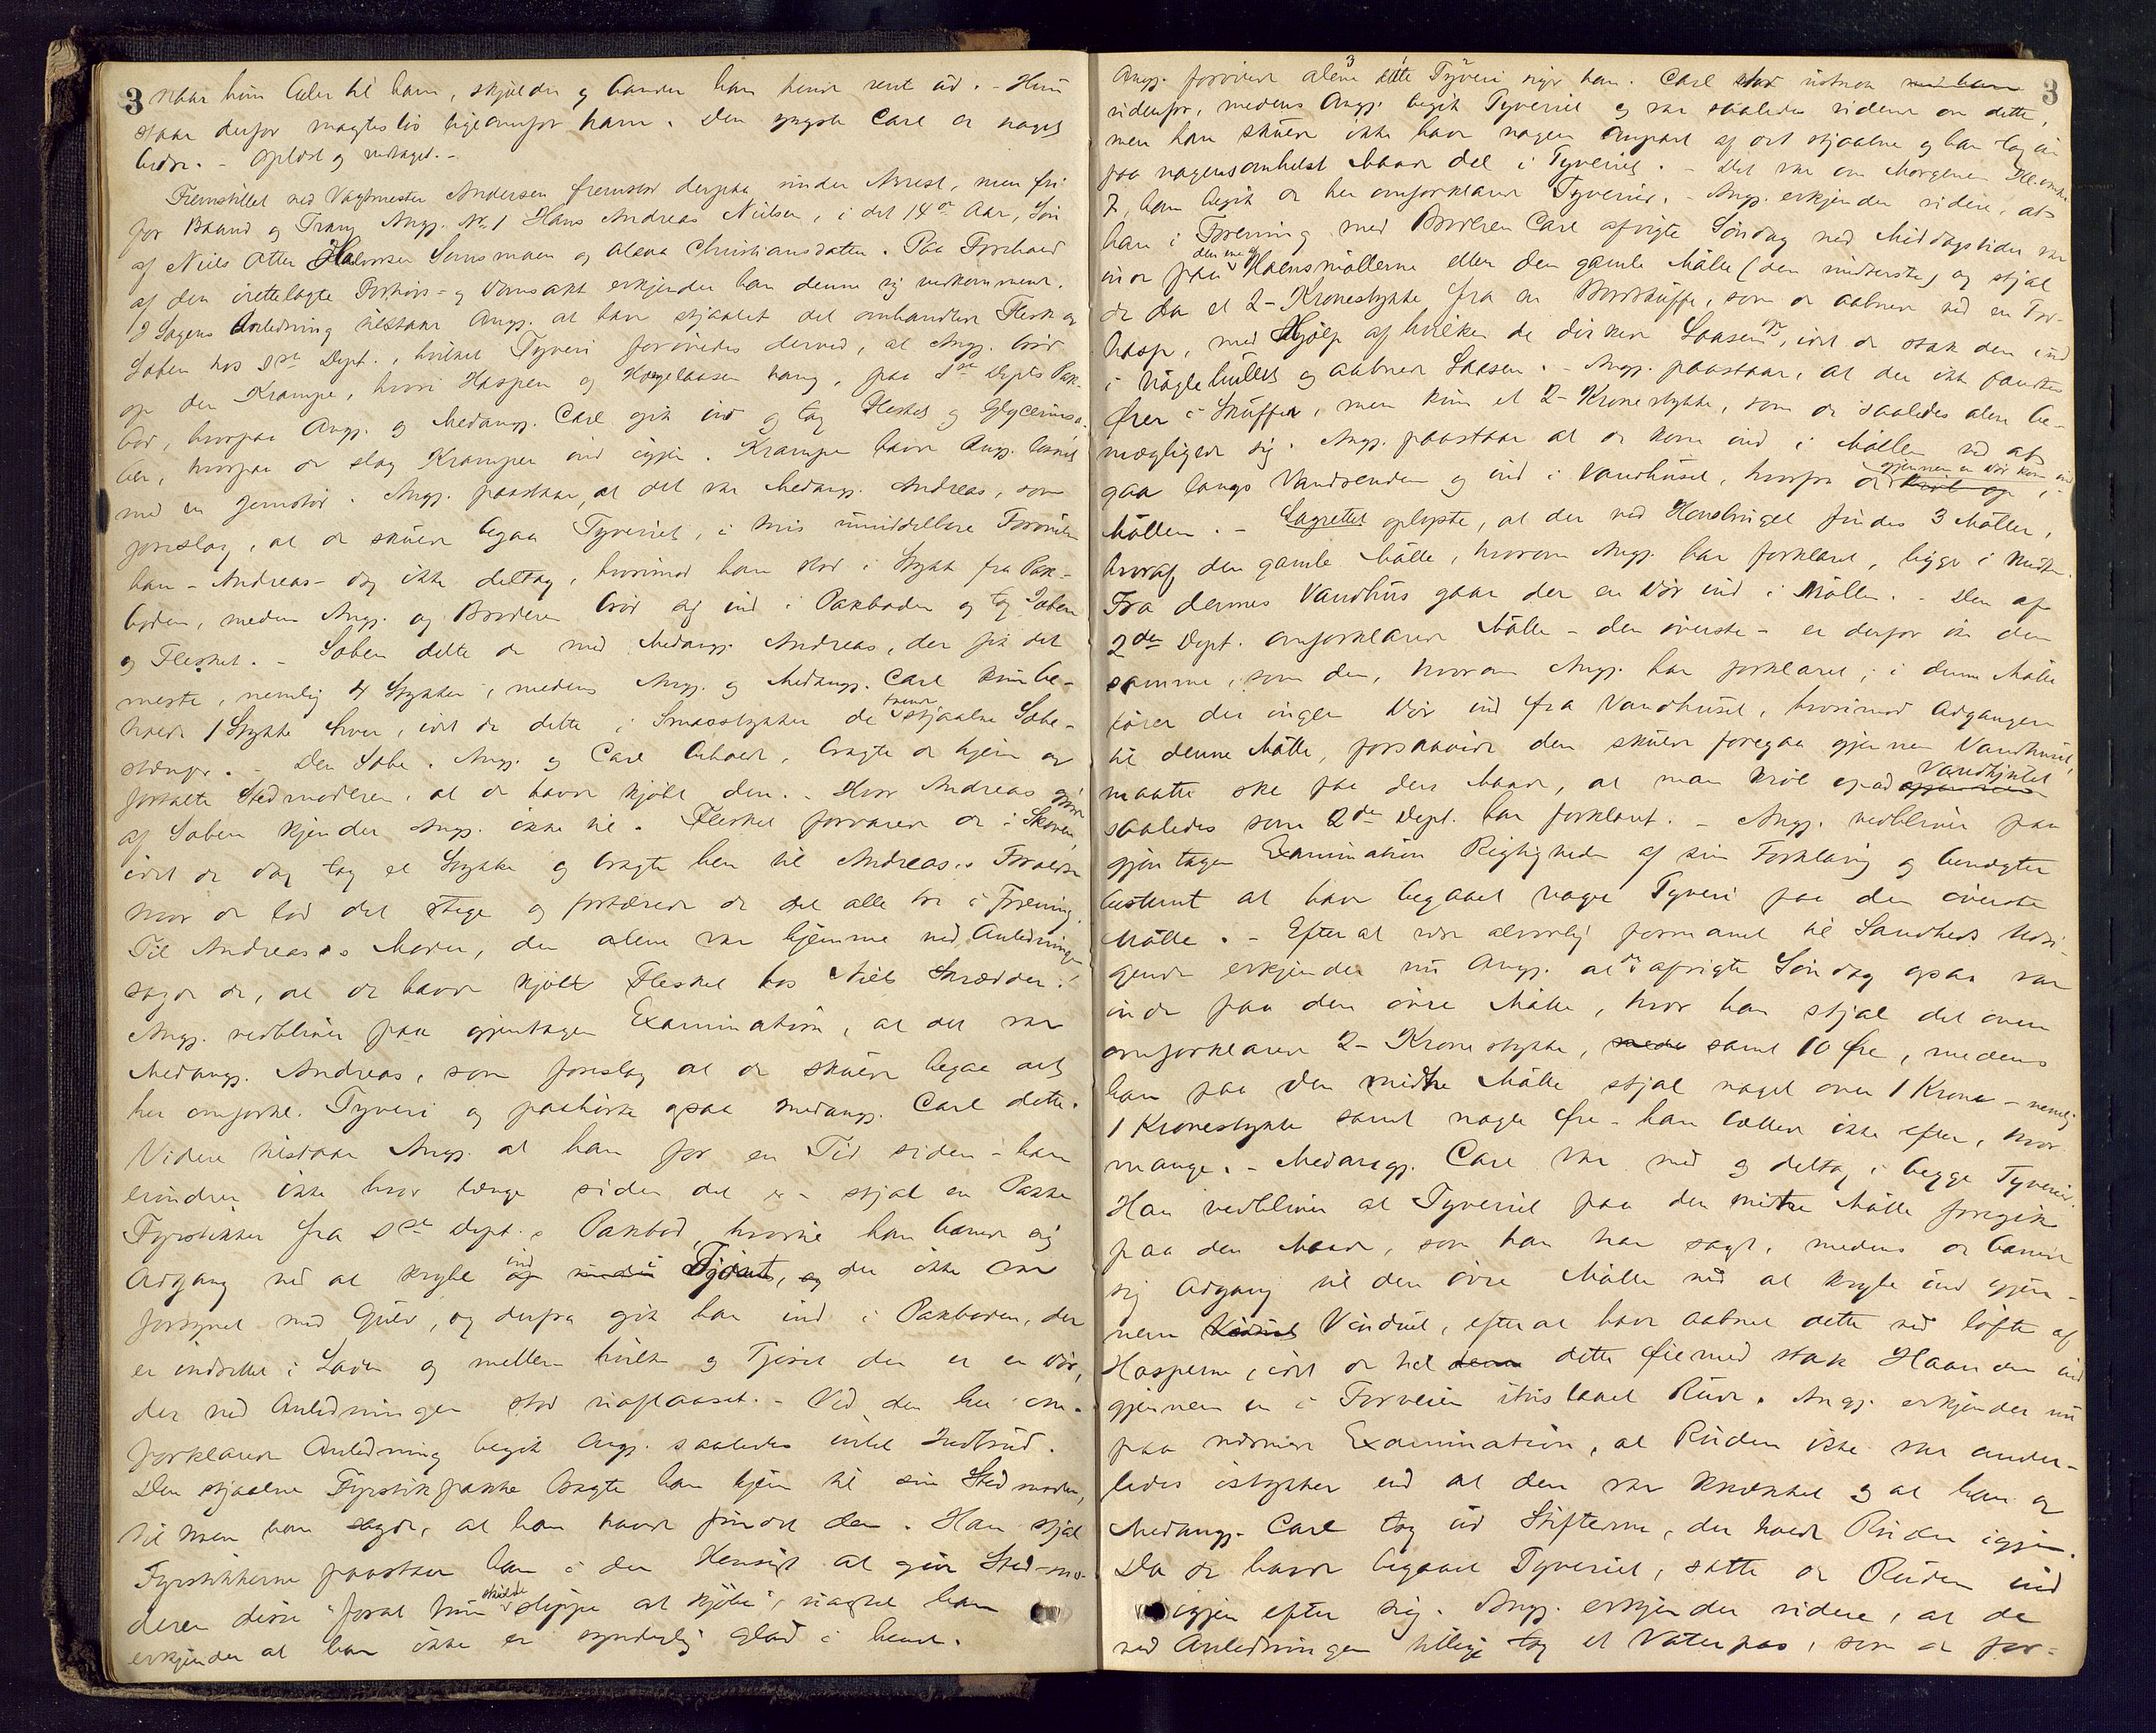 3
naar hun taler til ham, skjælder og bander han hende rent ud. - Hun
staar derfor magteslös ligeoverfor ham. Den yngste Carl er noget
bedre. - Oplæst og vedtaget. -
Fremstillet ved Vagtmester Andersen fremstod derpaa under Arrest, men fri
for Baand og Tvang Angj. No 1 Hans Andreas Nielsen, i det 14de Aar, Sön
af Niels Otter Halvorsen og Olava Christiansdatter. Paa Forehold
af den irettelagte Forhörs- og Domsakt erkjender han denne sig vedkommende.
I Sagens Anledning tilstaar Angj. at have stjaalet det omhandlede Flesk og
Såben hos 1ste Dept., hvilket Tyveri forövedes derved, at Angj. bröd
op den Krampe, hvori Haspen og Hængelaasen hang, paa 1ste Depts Pak-
bod, hvorpaa Angj. og Medangj. Carl gik ind og tog Flesket og Glycerinsæ-
ben, hvorpaa de slog Krampen ind igjen. Krampen havde Angj. løsnet
med en Jernstör. Angj. paastaar, at det var Medangj. Andreas, som
foreslog, at de skulde begaa Tyveriet, i hvis umiddelbare Forövelse
han - Andreas - dog ikke deltog, hvorimod han stod i Stykke fra Pak-
boden, medens Angj. og Broderen bröd sig ind i Pakboden og tog Såben
og Flesket. - Såben delte de med Medangj. Andreas, der fik det
meste, nemlig 4 Stykker, medens Angj. og Medangj. Carl kun be-
holdt 1 Stykke hver, idet de delte i Smaastykker de trende stjaalne Såbe-
stænger. - Den Såbe, Angj. og Carl beholdt, bragte de hjem og
fortalte Stedmoderen, at de havde kjöbt den. - Hvor Andreas gjorde
af Såben kjender Angj. ikke til. Flesket forvarede de i Skoven,
idet de dog tog et Stykke og bragte hen til Andreas's Forældre
hvor de lod det stege og fortærede de det alle tre i Forening.
Til Andreas's Moder, der alene var hjemme ved Anledningen,
sagde de, at de havde kjöbt Flesket hos Niels Skrædder.
Angj. vedbliver paa gjentagen Examination, at det var
Medangj. Andreas, som foreslog at de skulde begaa det
her omforkl. Tyveri og paahörte ogsaa Medangj. Carl dette.
Videre tilstaar Angj. at han for en Tid siden - han
erindrer ikke hvor længe siden det er - stjal en Pakke
Fyrstikker fra 1ste Dept.s Pakbod, hvortil han banede sig
Adgang ved at krybe ind under Fjöset, der ikke var
forsynet med Gulv, og derfra gik han ind i Pakboden, der
er indrettet i Laden og mellem hvilken og Fjöset der er en Dör,
der ved Anledningen stod uaflaaset. - Ved den her om-
forklarede Anledning begik Angj. saaledes intet Indbrud.
Den stjaalne Fyrstikpakke bragte han hjem til sin Stedmoder,
til hvem han sagde, at han havde fundet den. Han stjal
Fyrstikkerne paastaar han i den Hensigt at give Stedmo-
deren disse "forat hun skulde slippe at kjöbe", uagtet han
erkjender at han ikke er synderlig glad i hende.
3
Angj. forövede alene dette Tyveri siger han. Carl stod ustraks
udenfor, medens Angj. begik Tyveriet og var saaledes vidende om dette,
men han skulde ikke have nogen Anpart af det stjaalne og han tog ei
paa nogensomhelst Maade del i Tyveriet. - Det var om Morgenen Kl. omkr.
7, han begik det her omforklarede Tyveri. - Angj. erkjender videre, at
han i Forening med Broderen Carl afvigte Söndag ved Middagstider var
inde paa den ene af Haensmöllerne eller den gamle Mölle (den midterste) og stjal
de da et 2-Kronestykke fra en Bordskuffe, som de aabnede ved en Dör-
hasp, med Hjælp af hvilken de dirkede Laasen op, idet de stak den ind
i Nöglehullet og aabnede Laasen. - Angj. paastaar, at der ikke fandtes
Ører i Skuffen, men kun et 2-Kronestykke, som de saaledes alene be-
mægtigede sig. Angj. paastaar at de kom ind i Möllen ved at
gaa langs Vandrenden og ind i Vandhuset, hvorfra de gjennem en Dör kom ind i
Möllen. - Lagrettet oplyste, at der ved findes 3 Möller,
hvoraf den gamle Mölle, hvorom Angj. har forklaret, ligger i Midten.
Fra dennes Vandhus gaar der en Dör ind i Möllen. - Den af
2den Dept. omforklarede Mölle - den överste - er derfor ikke den
samme, som den, hvorom Angj. har forklaret; i denne Mölle
förer der ingen Dör ind fra Vandhuset, hvorimod Adgangen
til denne Mölle, forsaavidt den skulde foregaa gjennem Vandhuset,
maatte ske paa den Maade, at man kröb opad Vandhjulet
saaledes som 2den Dept. har forklaret. - Angj. vedbliver paa
gjentagen Examination Rigtigheden af sin Forklaring og benægter
bestemt at have begaaet noget Tyveri paa den överste
Mölle. - Efter at være alvorlig formanet til Sandheds Udsi-
gende erkjender nu Angj. at de afvigte Söndag ogsaa var
inde paa den övre Mölle, hvor han stjal det oven
omforklarede 2-Kronestykke, samt 10 Øre, medens
han paa den midtre Mölle stjal noget over 1 Krone - nemlig
1 Kronestykke samt nogle Øre - han tællede ikke efter, hvor
mange. - Medangj. Carl var med og deltog i begge Tyverier.
Han vedbliver at Tyveriet paa den midtre Mölle foregik
paa den Maade, som han har sagt, medens de banede
sig Adgang til den övre Mölle ved at krybe ind gjen-
nem Vinduet, efter at have aabnet dette ved löfte af
Hasperne, idet de til dette Øiemed stak Haanden ind
gjennem en i Forveien itusl­aaet Rude. Angj. erkjender nu
paa nærmere Examination, at Ruden ikke var ander-
ledes istykker end at den var knækket og at han og
Medangj. Carl tog ud Stifterne, der holdt Ruden igjen.
Da de havde begaaet Tyveriet, satte de Ruden ind
igjen efter sig. Angj. erkjender videre, at de
ved Anledningen tillige tog et Vaterpas, som de for-